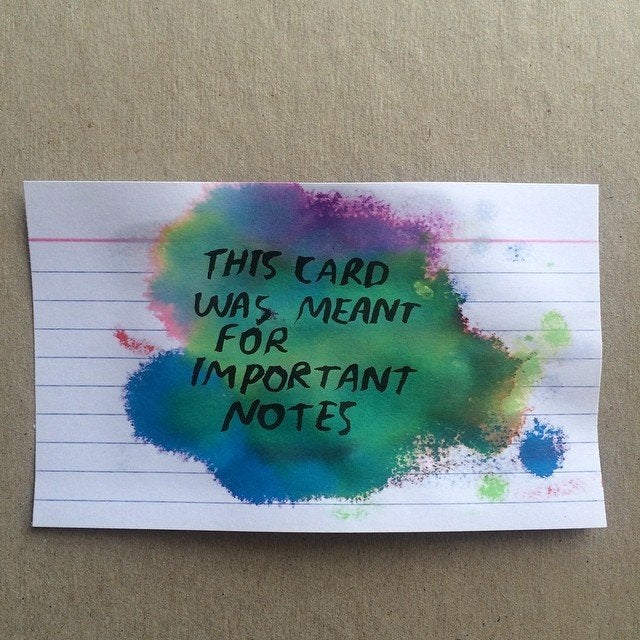 THIS CARD
WAS MEANT
FOR
IMPORTANT
NOTES